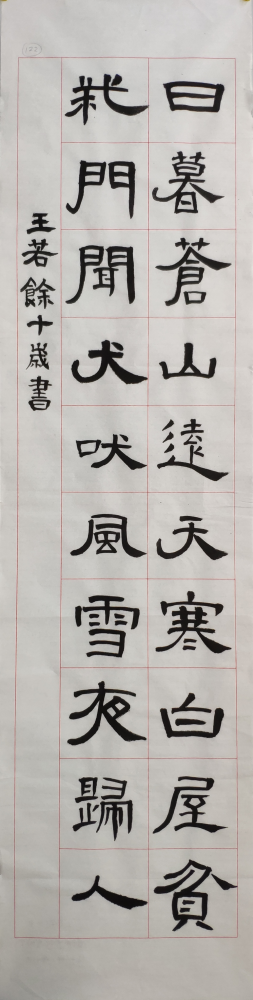 日暮蒼山遠天寒白屋貧
柴門聞犬吠風雪夜歸人
王若餘十歲書